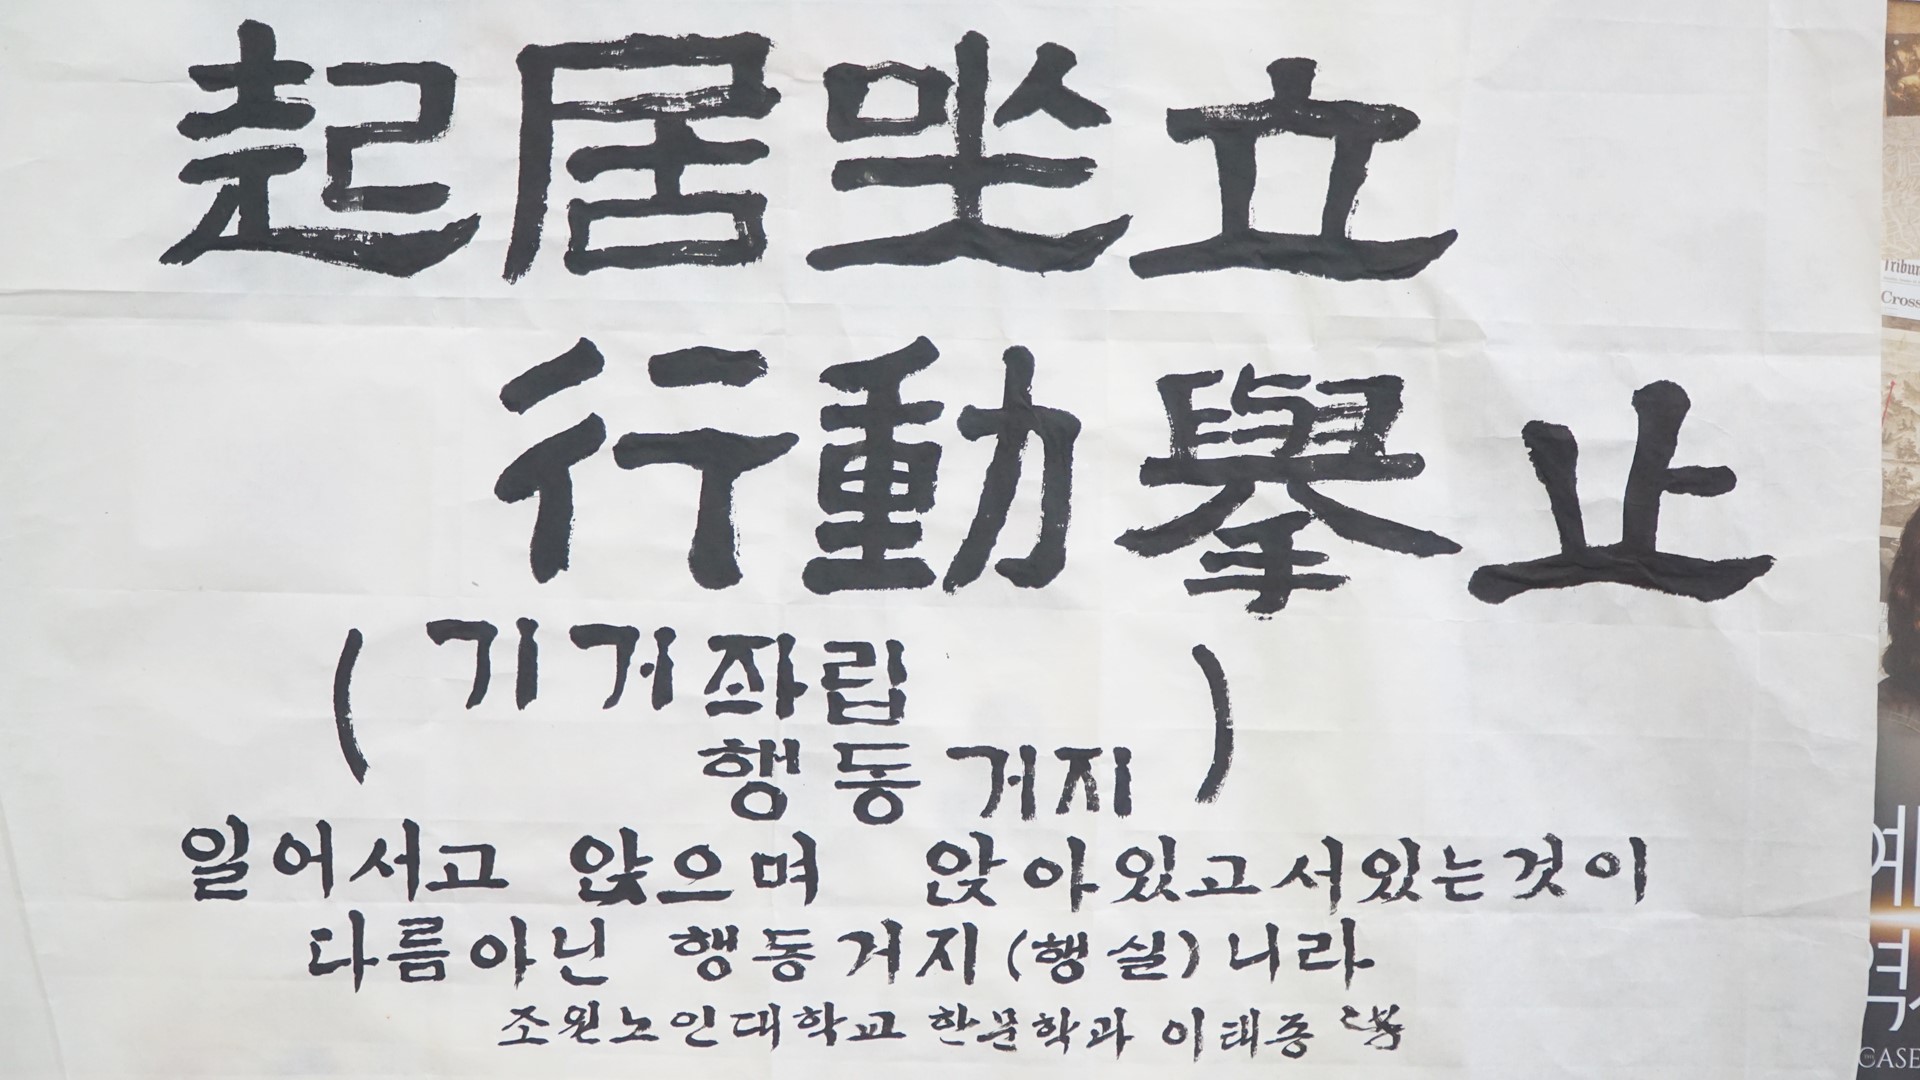 起居坐立
行動擧止
(기거좌립
행동거지)
일어서고 앉으며 앉아있고서있는것이
다름아닌 행동거지(행실)니라
조원노인대학교 한문학과 이태종
Tribun
Cross
예
역
CASE